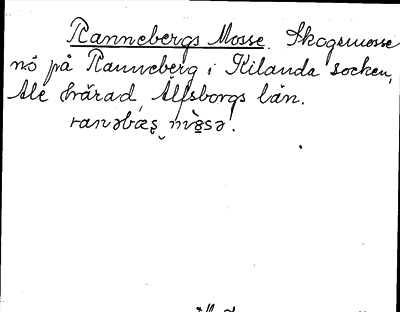 Rannebergs Mosse. Skogsmosse
nö på Ranneberg i Kilanda socken,
Ale härad, Älfsborgs län.
ranəbæȿ mòsə.